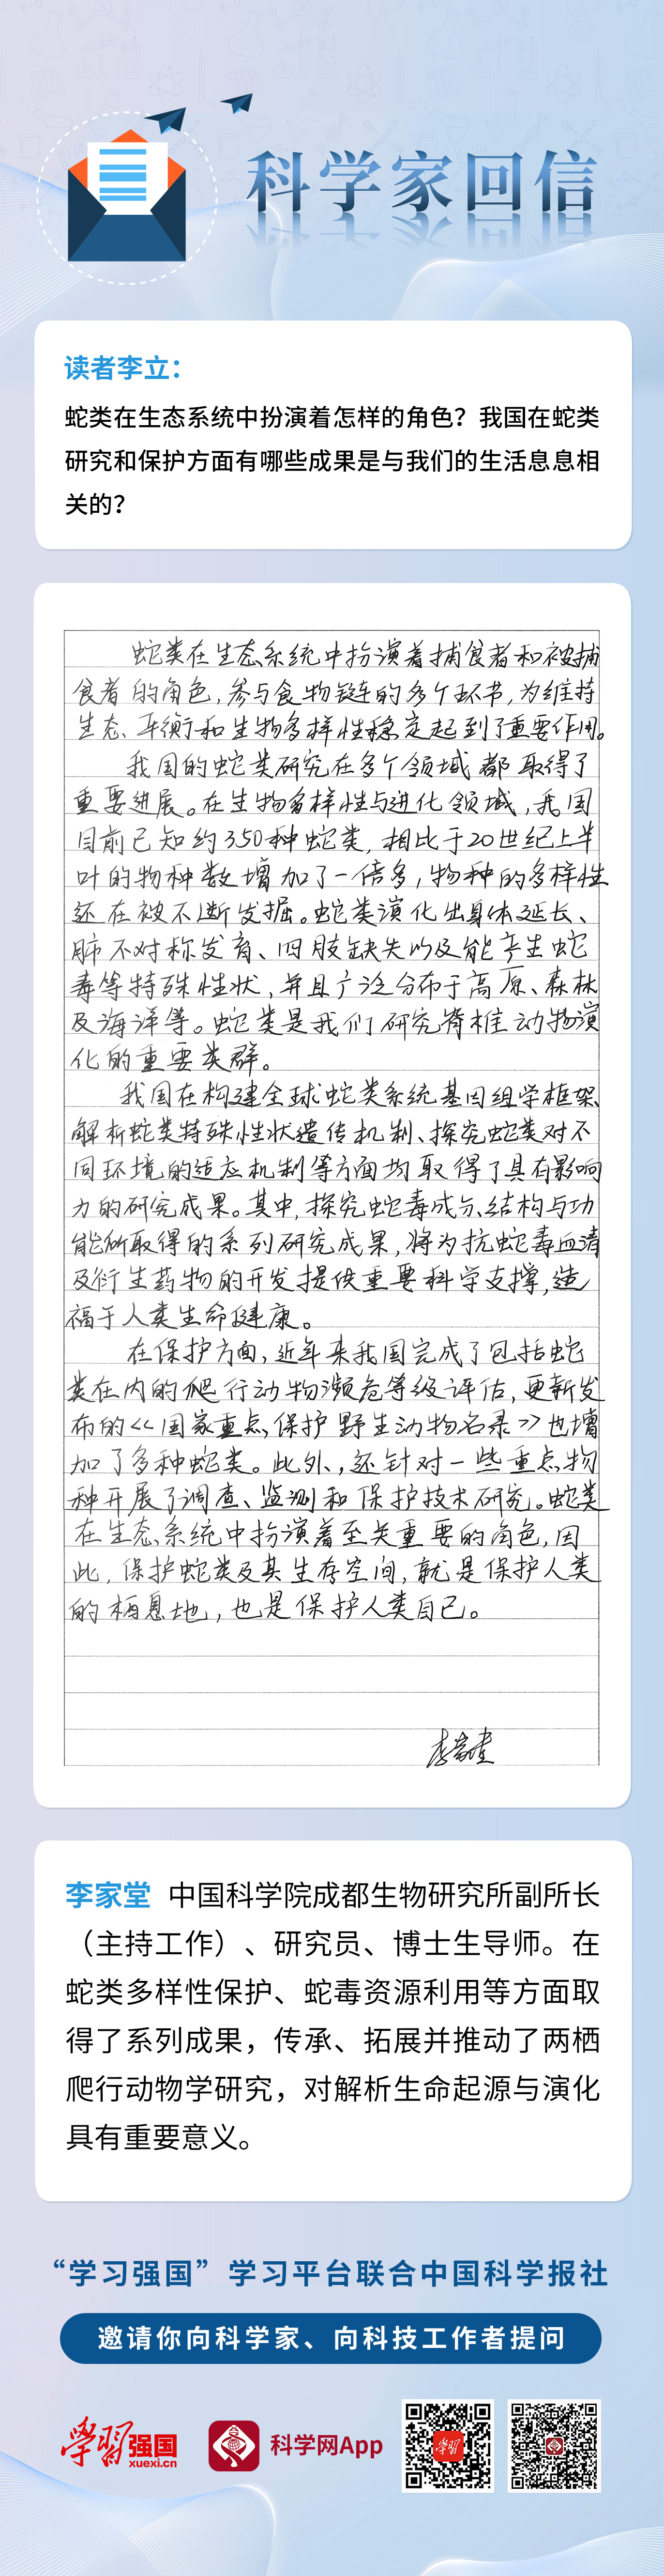 科学家回信
读者李立：
蛇类在生态系统中扮演着怎样的角色？我国在蛇类
研究和保护方面有哪些成果是与我们的生活息息相
关的？
蛇类在生态系统中扮演着捕食者和被捕
食者的角色，参与食物链的多个环节，为维持
生态、平衡和生物多样性稳定起到了重要作用。
我国的蛇类研究在多个领域都取得了
重要进展。在生物多样性与进化领域，我国
目前已知约350种蛇类，相比于20世纪上半
叶的物种数增加了一倍多，物种的多样性
还在被不断发掘。蛇类演化出身体延长、
肺不对称发育、四肢缺失以及能产生蛇
毒等特殊性状，并且广泛分布于高原、森林
及海洋等。蛇类是我们研究脊椎动物演
化的重要类群。
我国在构建全球蛇类系统基因组学框架、
解析蛇类特殊性状遗传机制、探究蛇类对不
同环境的适应机制等方面均取得了具有影响
力的研究成果。其中，探究蛇毒成分、结构与功
能所取得的系列研究成果，将为抗蛇毒血清
及衍生药物的开发提供重要科学支撑，造
福于人类生命健康。
在保护方面，近年来我国完成了包括蛇
类在内的爬行动物濒危等级评估，更新发
布的《国家重点保护野生动物名录》也增
加了多种蛇类。此外，还针对一些重点物
种开展了调查、监测和保护技术研究。蛇类
在生态系统中扮演着至关重要的角色，因
此，保护蛇类及其生存空间，就是保护人类
的栖息地，也是保护人类自己。
李家堂
李家堂 中国科学院成都生物研究所副所长
（主持工作）、研究员、博士生导师。在
蛇类多样性保护、蛇毒资源利用等方面取
得了系列成果，传承、拓展并推动了两栖
爬行动物学研究，对解析生命起源与演化
具有重要意义。
“学习强国”学习平台联合中国科学报社
邀请你向科学家、向科技工作者提问
学习强国
xuexi.cn
科学网App
学习